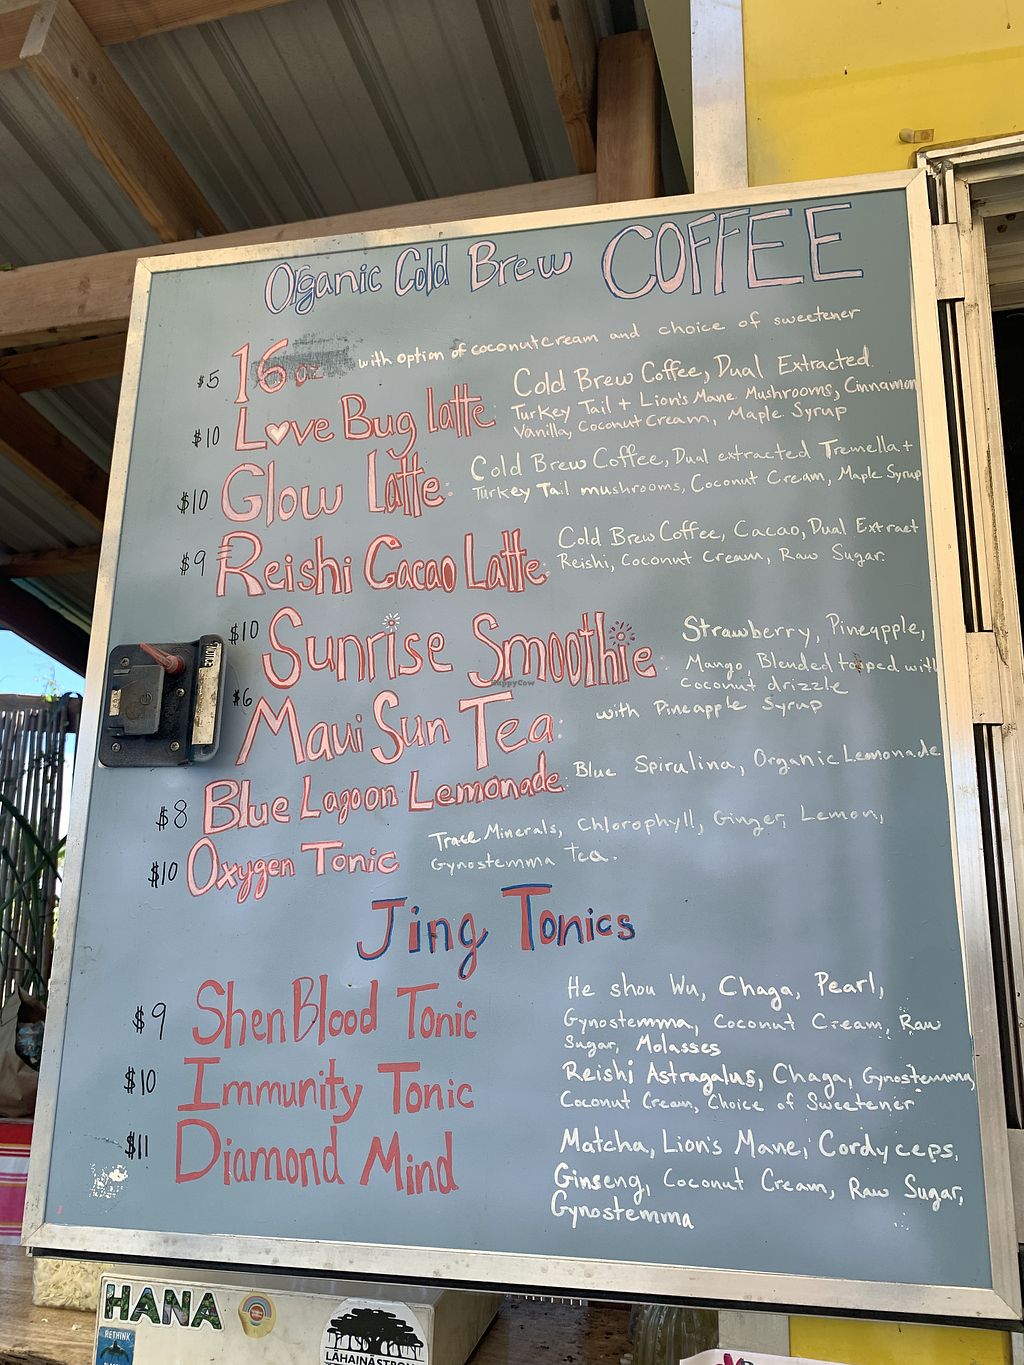 Organic Cold Brew COFFEE
$5 16 oz with option of coconut cream and choice of sweetener
$10 Love Bug latte: Cold Brew Coffee, Dual Extracted
Turkey Tail + Lion's Mane Mushrooms, Cinnamon
Vanilla, Coconut Cream, Maple Syrup
$10 Glow Latte: Cold Brew Coffee, Dual extracted Tremella +
Turkey Tail mushrooms, Coconut Cream, Maple Syrup
$9 Reishi Cacao Latte: Cold Brew Coffee, Cacao, Dual Extract
Reishi, Coconut Cream, Raw Sugar.
$10 Sunrise Smoothie: Strawberry, Pineapple,
Mango, Blended topped with
Coconut drizzle
$6 Maui Sun Tea: with Pineapple Syrup
$8 Blue Lagoon Lemonade: Blue Spirulina, Organic Lemonade
$10 Oxygen Tonic Trace Minerals, Chlorophyll, Ginger, Lemon,
Gynostemma Tea.
Jing Tonics
$9 Shen Blood Tonic He shou Wu, Chaga, Pearl,
Gynostemma, Coconut Cream, Raw
Sugar, Molasses
$10 Immunity Tonic Reishi Astragalus, Chaga, Gynostemma,
Coconut Cream, Choice of Sweetener
$11 Diamond Mind Matcha, Lion's Mane, Cordyceps,
Ginseng, Coconut Cream, Raw Sugar,
Gynostemma
HappyCow
HANA
RETHINK
LĀHAINĀSTRONG